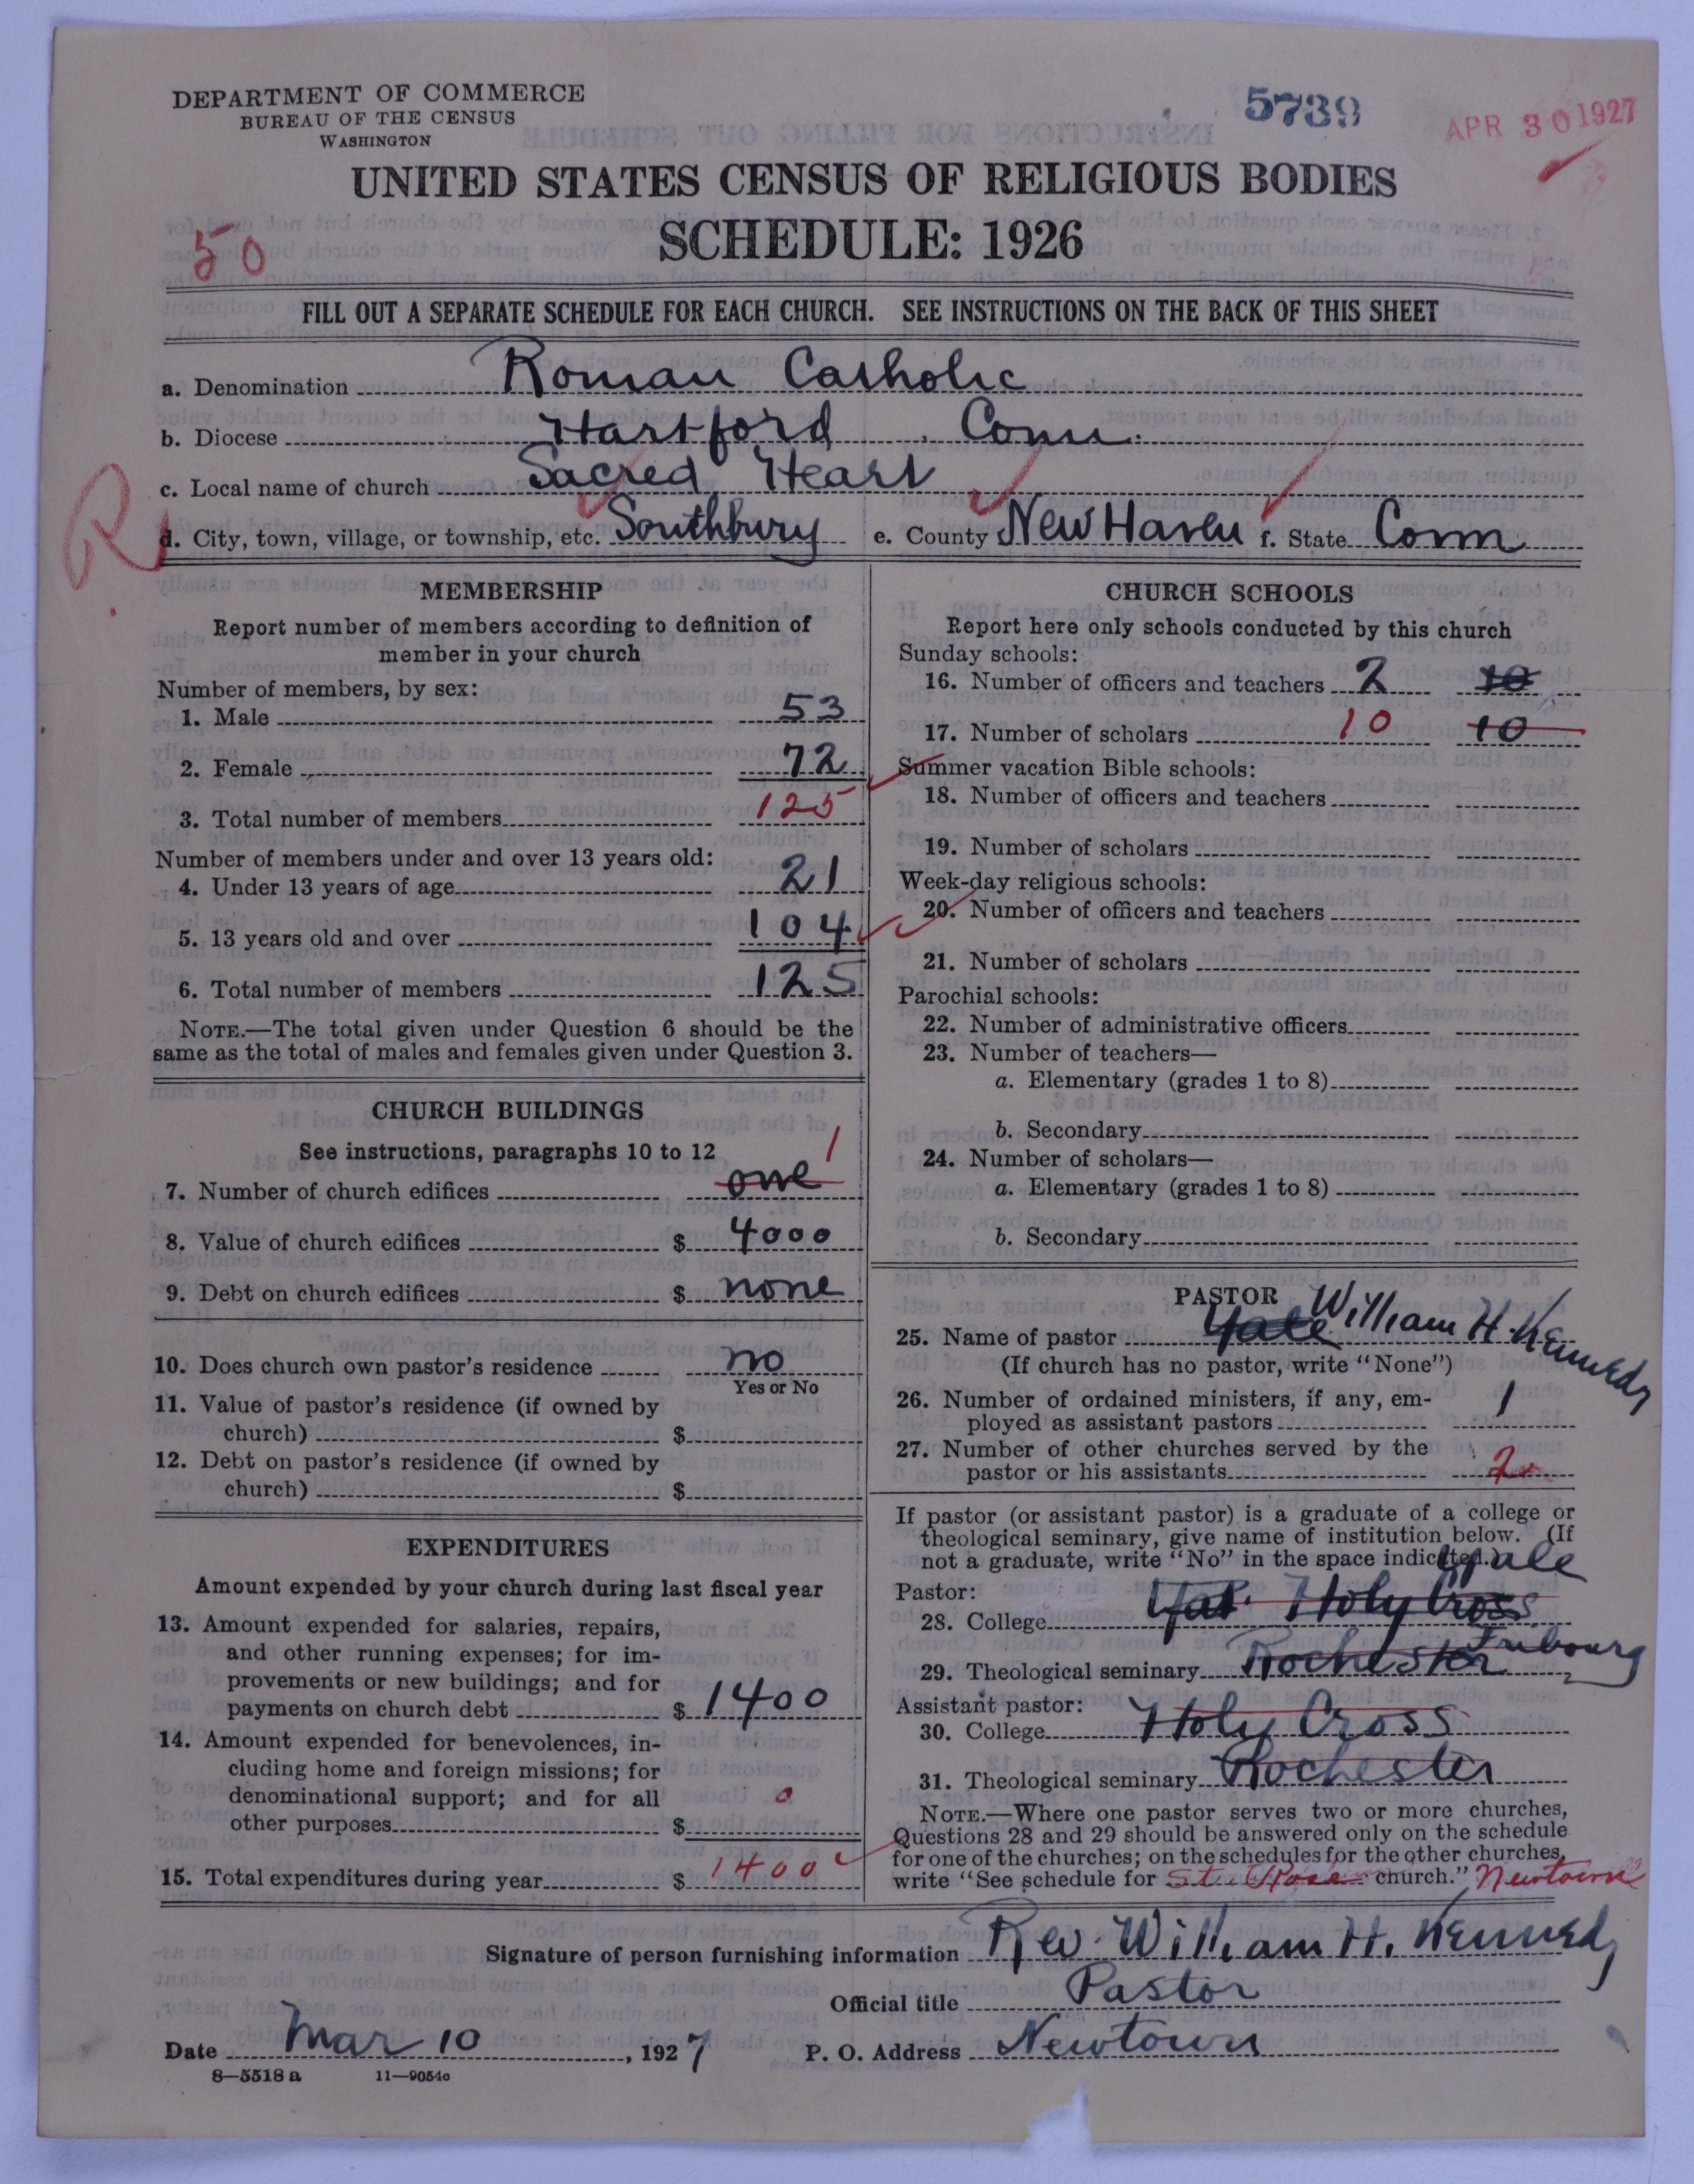 DEPARTMENT OF COMMERCE
BUREAU OF THE CENSUS
WASHINGTON
5739
APR 30 1927
UNITED STATES CENSUS OF RELIGIOUS BODIES
SCHEDULE: 1926
50
FILL OUT A SEPARATE SCHEDULE FOR EACH CHURCH. SEE INSTRUCTIONS ON THE BACK OF THIS SHEET
a. Denomination Roman Catholic
b. Diocese Hartford, Conn.
c. Local name of church Sacred Heart
R
d. City, town, village, or township, etc. Southbury e. County New Haven f. State Conn
MEMBERSHIP
Report number of members according to definition of
member in your church
Number of members, by sex:
1. Male 53
2. Female 72
3. Total number of members 125
Number of members under and over 13 years old:
4. Under 13 years of age 21
5. 13 years old and over 104
6. Total number of members 125
NOTE.—The total given under Question 6 should be the
same as the total of males and females given under Question 3.
CHURCH BUILDINGS
See instructions, paragraphs 10 to 12
7. Number of church edifices one 1
8. Value of church edifices $ 4000
9. Debt on church edifices $ none
10. Does church own pastor's residence no
Yes or No
11. Value of pastor's residence (if owned by
church) $
12. Debt on pastor's residence (if owned by
church) $
EXPENDITURES
Amount expended by your church during last fiscal year
13. Amount expended for salaries, repairs,
and other running expenses; for im-
provements or new buildings; and for
payments on church debt $ 1400
14. Amount expended for benevolences, in-
cluding home and foreign missions; for
denominational support; and for all
other purposes $ 0
15. Total expenditures during year $ 1400
CHURCH SCHOOLS
Report here only schools conducted by this church
Sunday schools:
16. Number of officers and teachers 2 10
17. Number of scholars 10 10
Summer vacation Bible schools:
18. Number of officers and teachers
19. Number of scholars
Week-day religious schools:
20. Number of officers and teachers
21. Number of scholars
Parochial schools:
22. Number of administrative officers
23. Number of teachers—
a. Elementary (grades 1 to 8)
b. Secondary
24. Number of scholars—
a. Elementary (grades 1 to 8)
b. Secondary
PASTOR
25. Name of pastor Yale William H. Kennedy
(If church has no pastor, write "None")
26. Number of ordained ministers, if any, em-
ployed as assistant pastors 1
27. Number of other churches served by the
pastor or his assistants 2
If pastor (or assistant pastor) is a graduate of a college or
theological seminary, give name of institution below. (If
not a graduate, write "No" in the space indicated.)
Pastor: Yale
28. College Holy Cross
29. Theological seminary Rochester Fribourg
Assistant pastor:
30. College Holy Cross
31. Theological seminary Rochester
NOTE.—Where one pastor serves two or more churches,
Questions 28 and 29 should be answered only on the schedule
for one of the churches; on the schedules for the other churches,
write "See schedule for St. Rose church." Newtown
Signature of person furnishing information Rev. William H. Kennedy
Official title Pastor
Date Mar 10, 1927 P. O. Address Newtown
8—5518 a 11—9054c